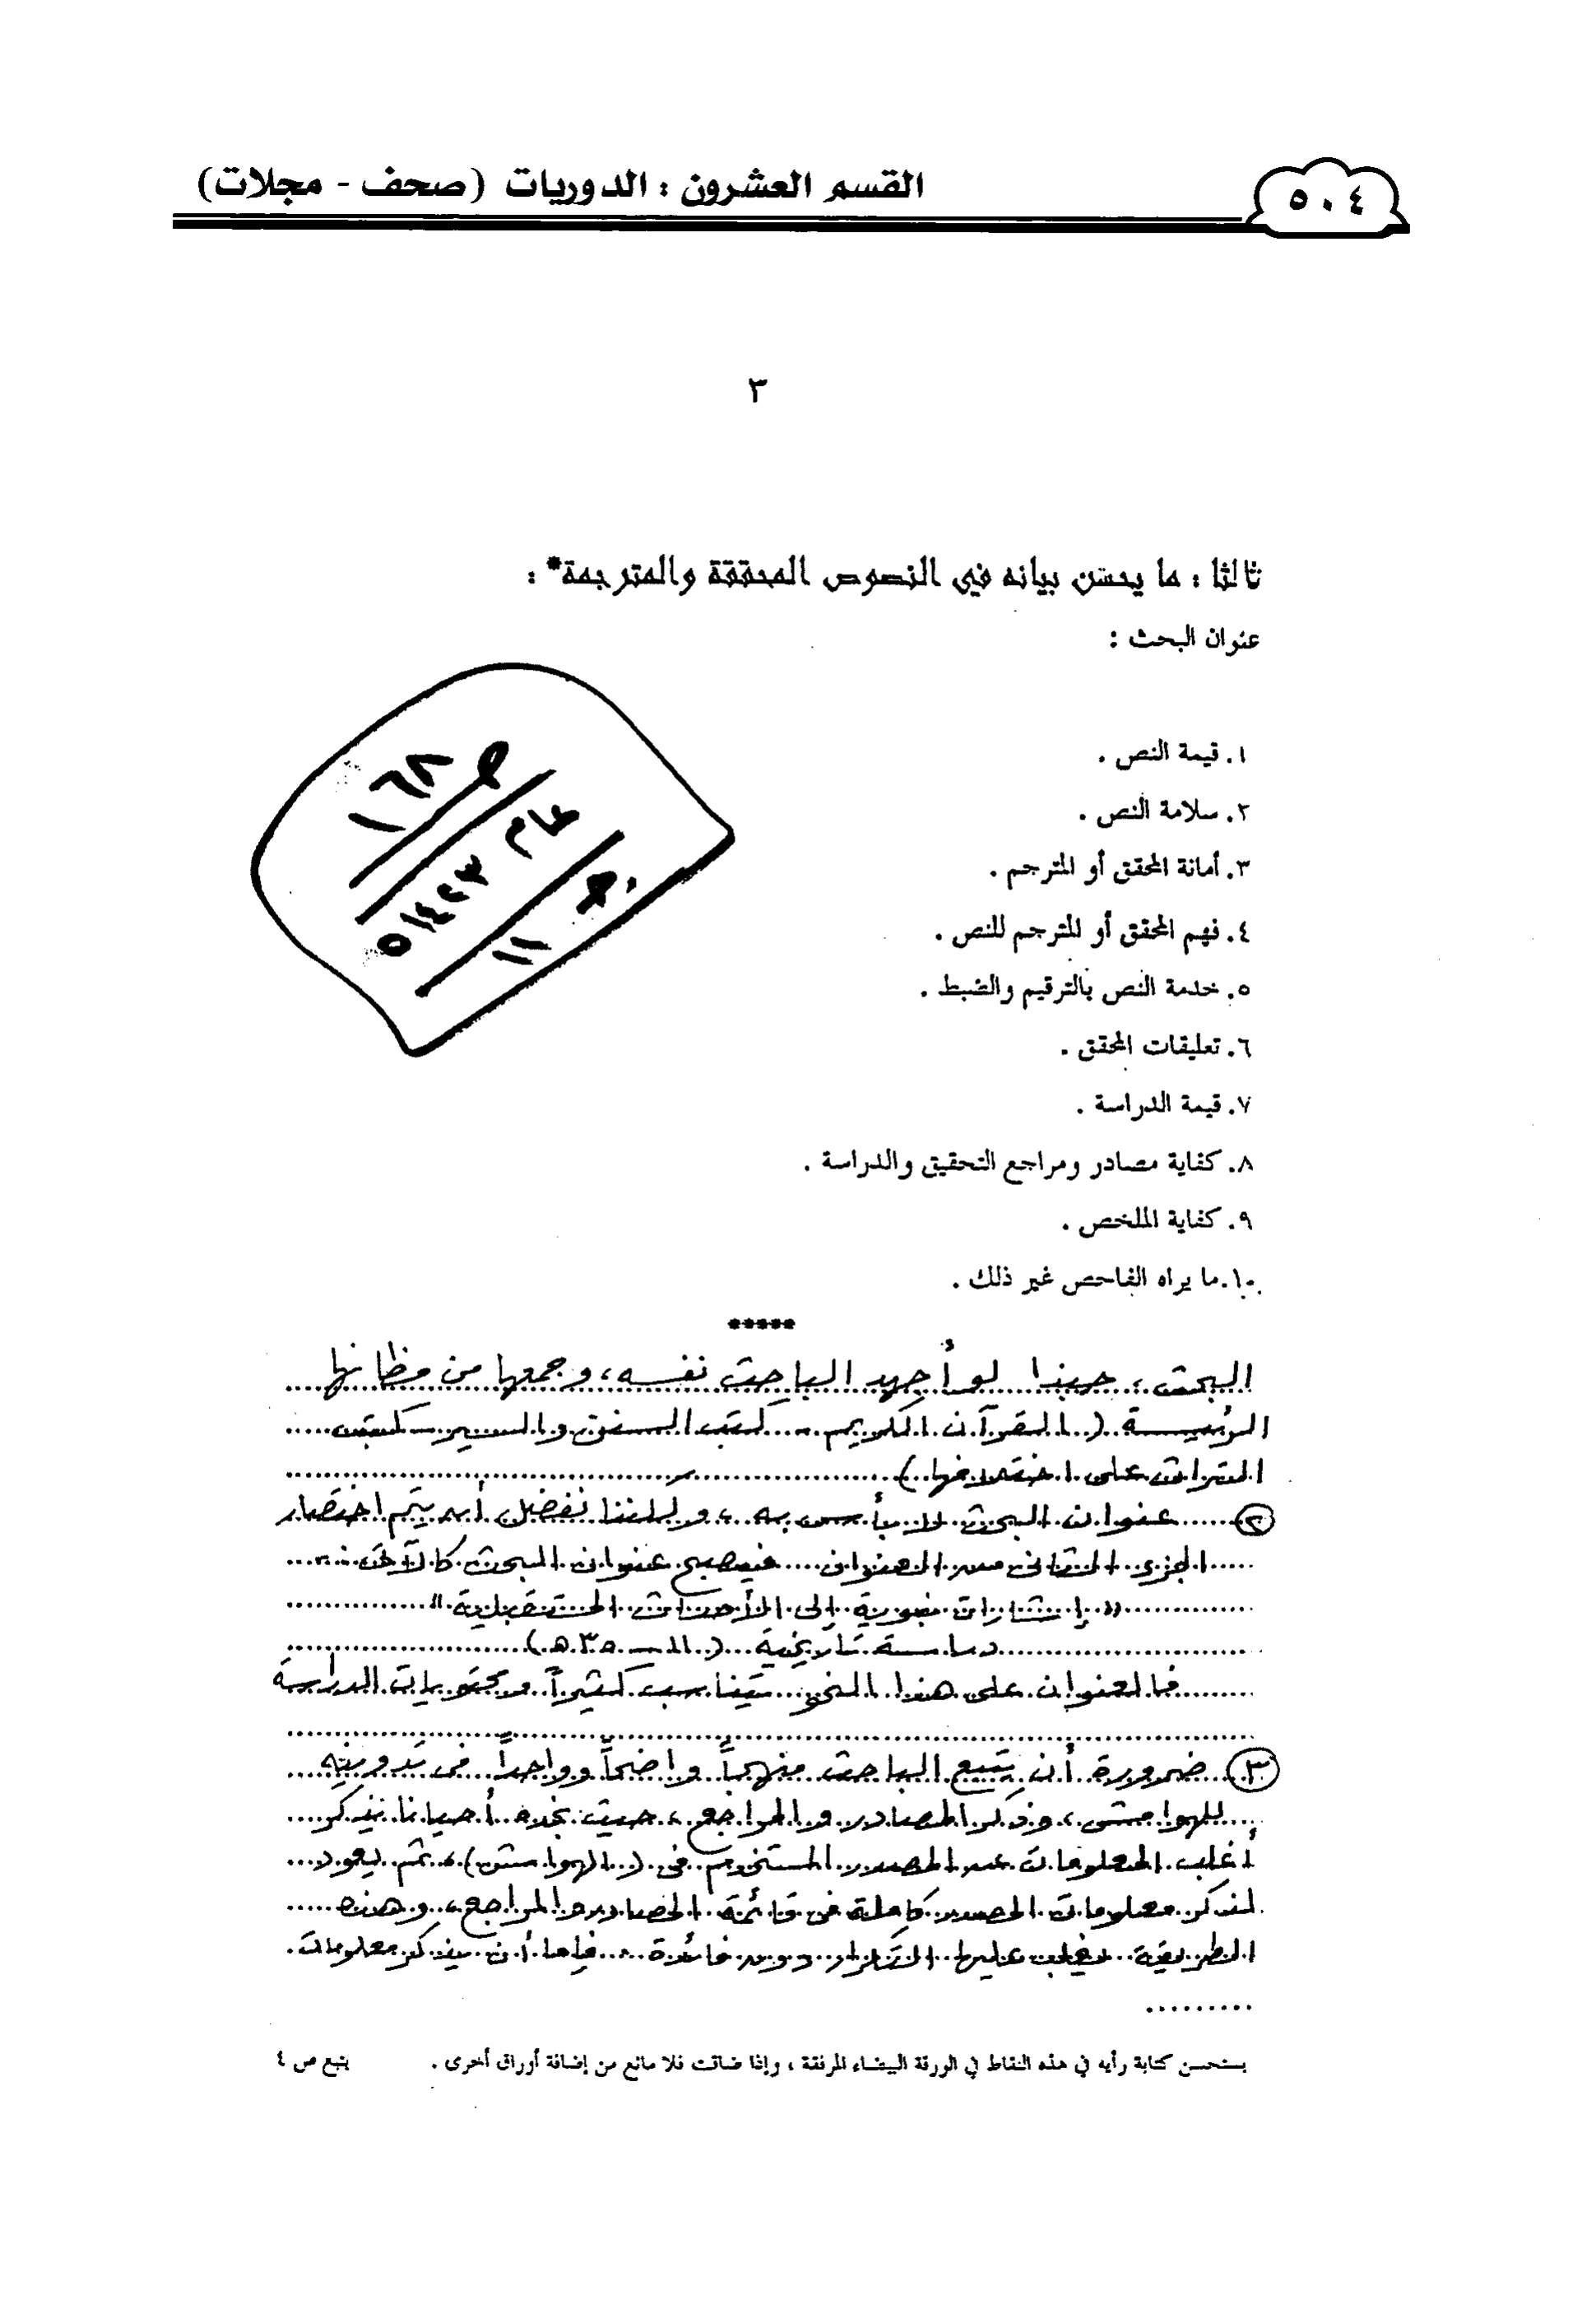 القسم العشرون : الدوريات (صحف - مجلات)
٥٠٤
٣
ثالثا : ما يحسن بيانه في النصوص المحققة والمترجمة* :
عنوان البحث :
١. قيمة النص .
٢. سلامة النص .
٣. أمانة المحقق أو المترجم .
٤. فهم المحقق أو المترجم للنص .
٥. خدمة النص بالترقيم والضبط .
٦. تعليقات المحقق .
٧. قيمة الدراسة .
٨. كفاية مصادر ومراجع التحقيق والدراسة .
٩. كفاية الملخص .
١٠. ما يراه الفاحص غير ذلك .
ص ١٦٨
عام ١٤٢٣ه
ج ١١
*****
البحث ، حبذا لو أجهد الباحث نفسه ، وجمعها من مظانها
الرئيسة (القرآن الكريم - كتب السنة والسير - كتب
التراث على اختلافها) .
٢ عنوان البحث لا بأس به ، ولكننا نفضل أن يتم اختصار
الجزء الثاني من العنوان فيصبح عنوان البحث كالآتي :
" إشارات نبوية إلى الأحداث المستقبلية "
دراسة تاريخية (١١ - ٣٥ هـ)
فالعنوان على هذا النحو يتناسب كثيراً ومحتويات الدراسة
٣ ضرورة أن يتبع الباحث منهجاً واضحاً وواحداً في تدوينه
للهوامش ، وذكر المصادر والمراجع ، حيث نجده أحيانا يذكر
أغلب المعلومات عن المصدر المستخدم في (الهوامش) ، ثم يعود
لذكر معلومات المصدر كاملة في قائمة المصادر والمراجع ، وهذه
الطريقة يغلب عليها التكرار دون فائدة . فإما أن يذكر معلومات
يستحسن كتابة رأيه في هذه النقاط في الورقة البيضاء المرفقة ، وإذا ضاقت فلا مانع من إضافة أوراق أخرى .
يتبع ص ٤